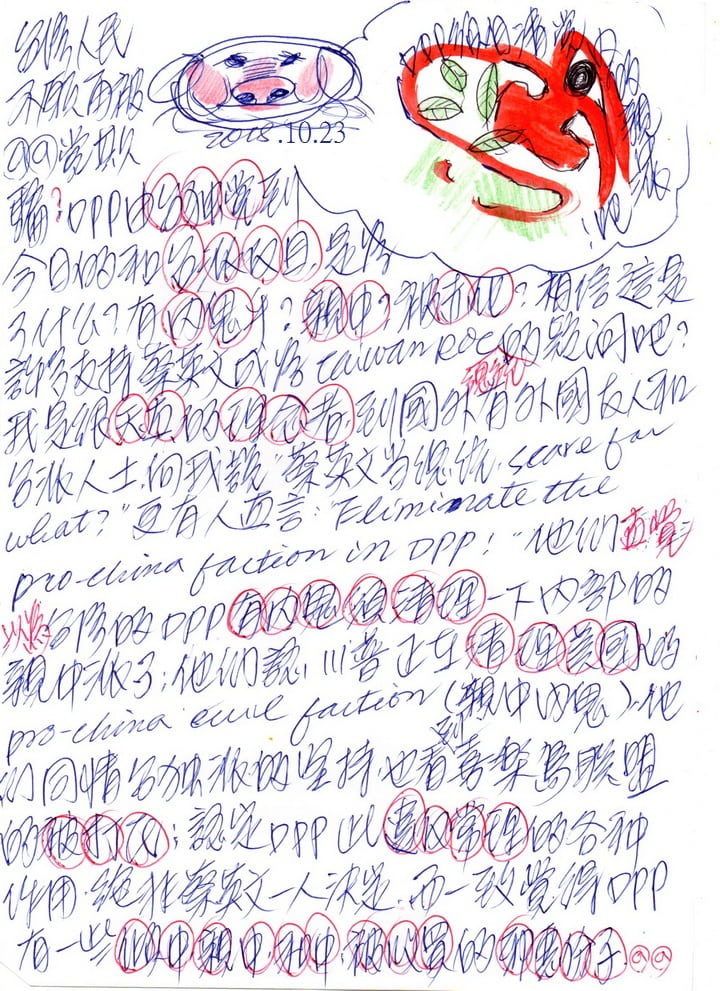 台灣人民
不願再被
@@党欺
騙？DPP由台独党到
今日的和台派反目是為
了什么？有内鬼！？親中？被赤化？相信這是
許多支持蔡英文成為Taiwan ROC的疑问吧？
我是很天真的理念者.到國外有外國友人和
台派人士.向我說"蔡英文当總統. scare for
what?"更有人直言："Eliminate the
pro-china faction in DPP!"他們直覺
以為台灣的DPP有内鬼須清理一下内部的
親中派了；他們認川普正在清理美國的
pro-china evil faction (親中内鬼).他
们同情台独派的坚持也看到喜樂島联盟
的被打压；認定DPP此違反常理的各种
作用.絶非蔡英文一人決定.而一致覺得DPP
有一些 親中 被收買的邪惡份子@@
2018.10.23
DPP 的親 派吧！